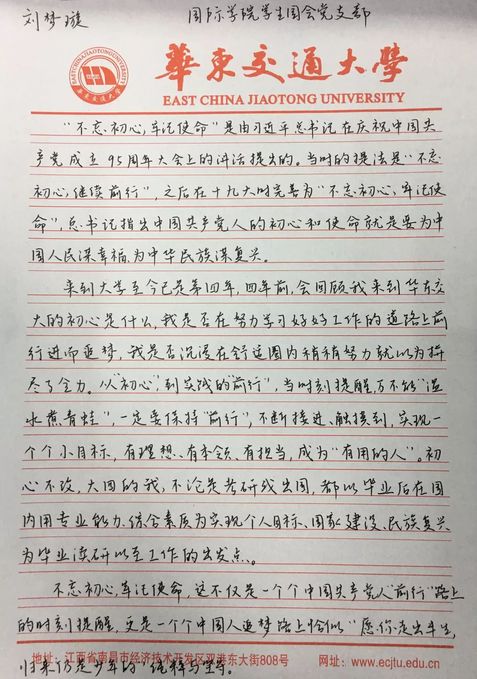 刘梦璇 国际学院学生团会党支部
EAST CHINA JIAOTONG UNIVERSITY
华东交通大学
华东交通大学
EAST CHINA JIAOTONG UNIVERSITY
“不忘初心,牢记使命”是由习近平总书记在庆祝中国共
产党成立95周年大会上的讲话提出的。当时的提法是“不忘
初心,继续前行”,之后在十九大时完善为“不忘初心,牢记使
命”,总书记指出中国共产党人的初心和使命就是要为中
国人民谋幸福,为中华民族谋复兴。
来到大学至今已是第四年,四年前,会回顾我来到华东交
大的初心是什么,我是否在努力学习好好工作的道路上前
行进而追梦,我是否沉浸在舒适圈内稍稍努力就以为拼
尽了全力。从“初心”到实践的“前行”,当时刻提醒,万不能“温
水煮青蛙”,一定要保持“前行”,不断接近、触接到,实现一
个个小目标,有理想、有本领、有担当,成为“有用的人”。初
心不改,大四的我,不论是考研或出国,都以毕业后在国
内用专业能力、综合素质为实现个人目标、国家建设、民族复兴
为毕业读研以至工作的出发点。
不忘初心,牢记使命,这不仅是一个个中国共产党人“前行”路上
的时刻提醒,更是一个个中国人追梦路上恰似“愿你走出半生,
归来仍是少年”的纯粹与坚守。
地址:江西省南昌市经济技术开发区双港东大街808号 网址:www.ecjtu.edu.cn